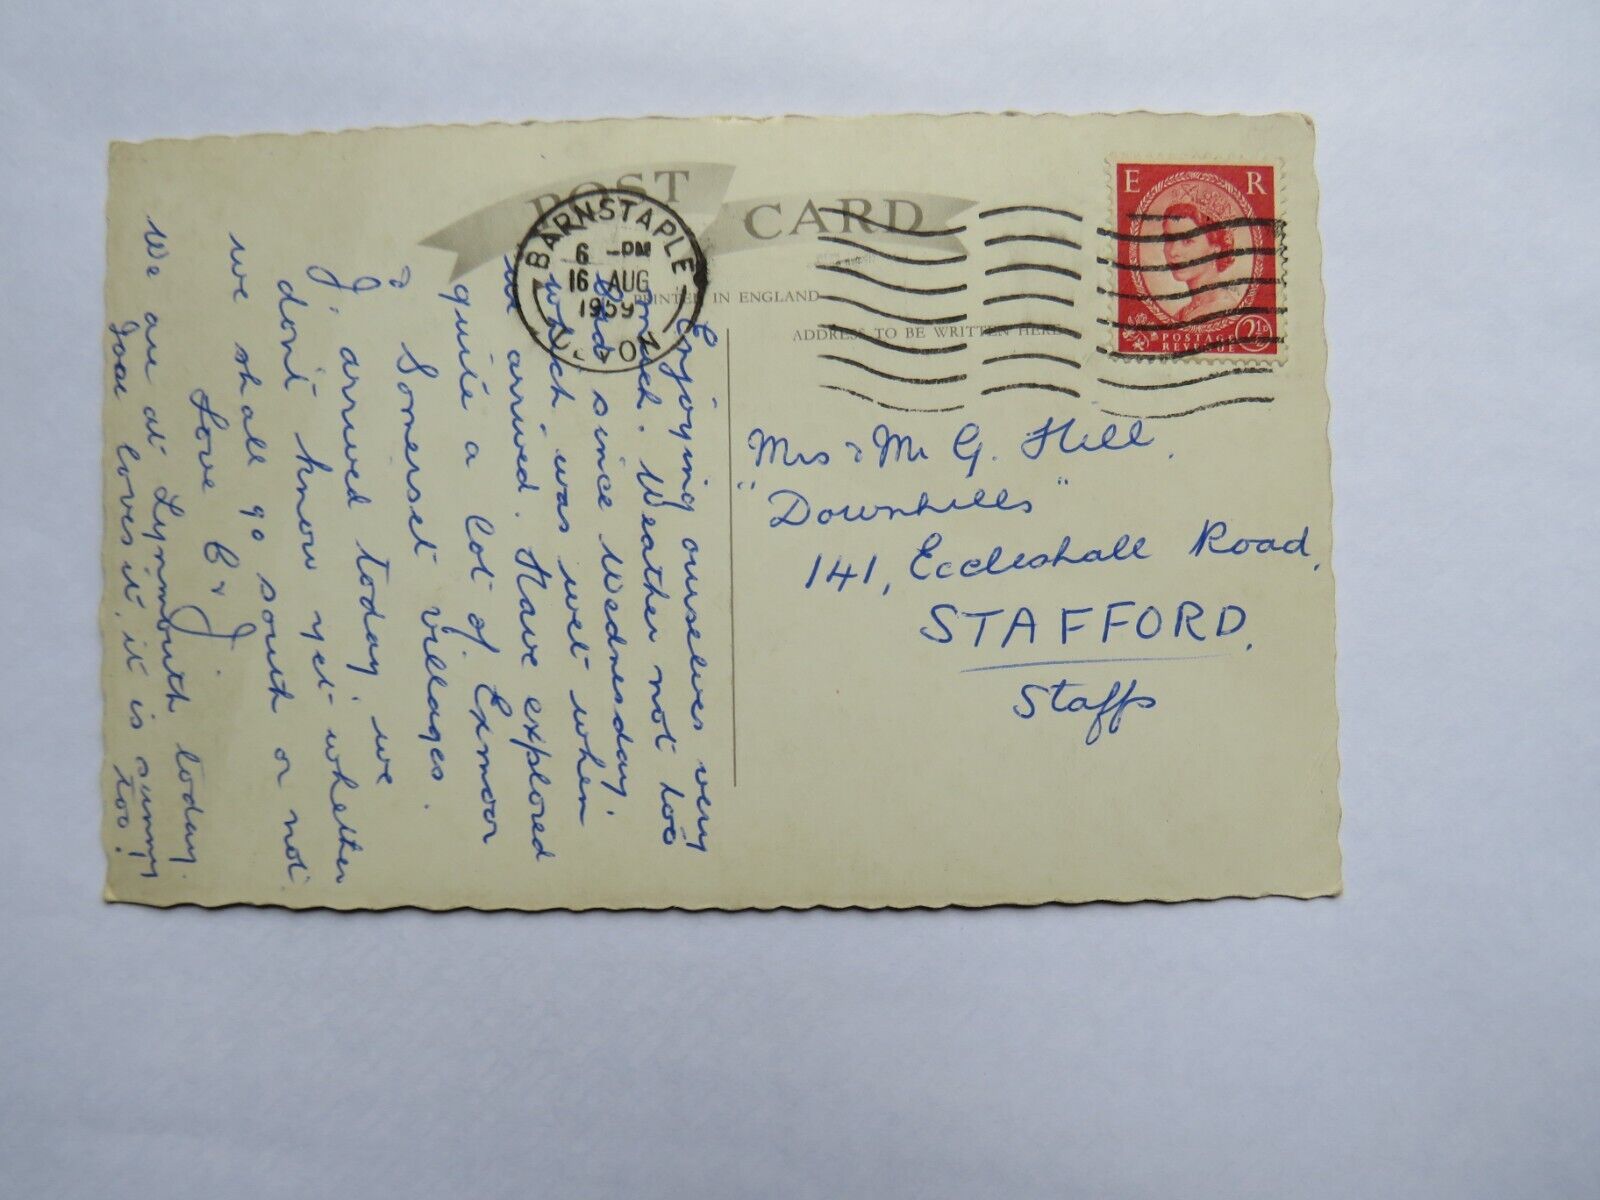 POST CARD
BARNSTAPLE
6 - PM
16 AUG
1959
DEVON
PRINTED IN ENGLAND
ADDRESS TO BE WRITTEN HERE
E R
POSTAGE
REVENUE
2½D
Enjoying ourselves very
much. Weather not too
bad since Wednesday,
which was wet when
we arrived. Have explored
quite a lot of Exmoor
& Somerset villages.
J. arrived today, we
don't know yet whether
we shall go south or not.
Love C & J.
We are at Lynmouth today.
loves it, it is sunny
too!
Mrs & Mr G. Hill.
"Downhills"
141, Eccleshall Road,
STAFFORD.
Staffs